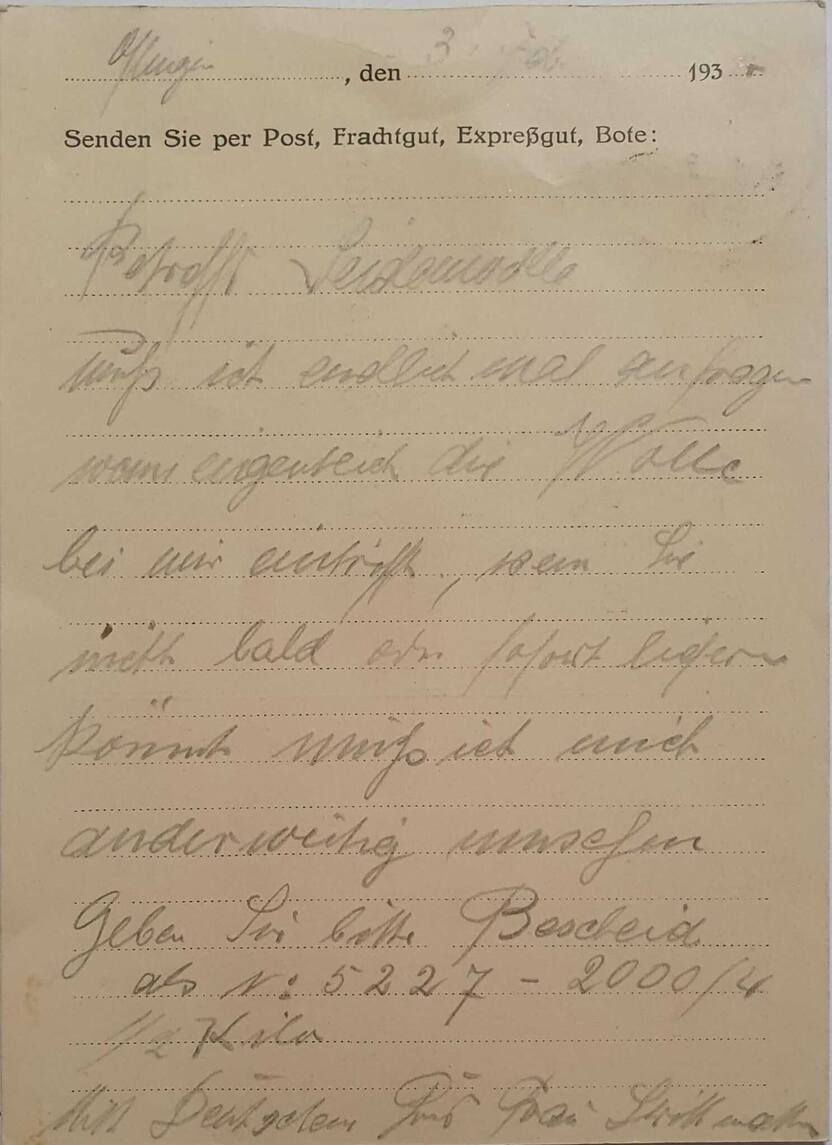 Öflingen, den 3. Feb. 193
Senden Sie per Post, Frachtgut, Expreßgut, Bote:
Betrifft Seidewolle
muß ich endlich mal anfragen
wann eigentlich die Wolle
bei mir eintrifft, wenn Sie
nicht bald oder sofort liefern
könnt muß ich mich
anderweitig umsehen
Geben Sie bitte Bescheid
als N: 5227 - 2000/4
1/2 Kilo
Mit Deutschem Gruß Frau